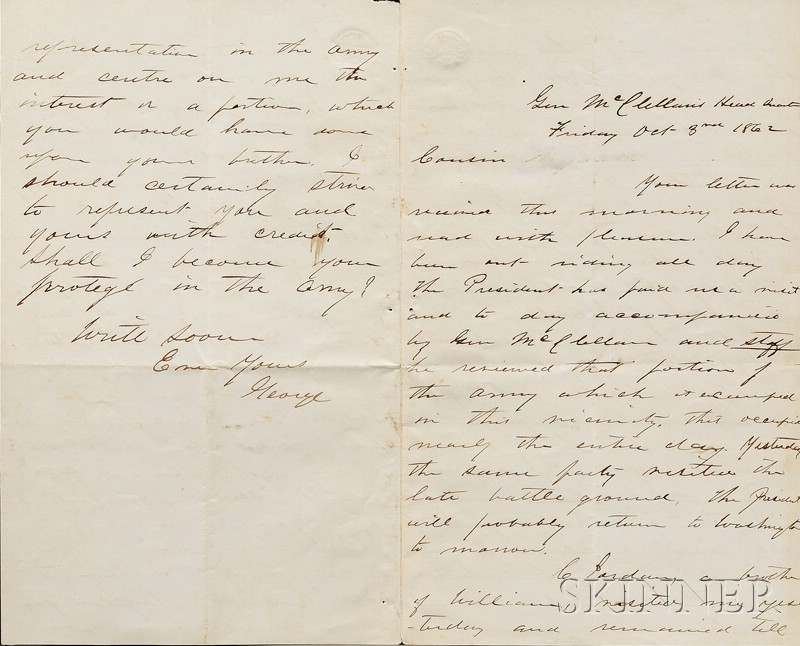 Gen McClellan's Head Quart
Friday Oct 3rd 1862
Cousin
Your letter was
received this morning and
read with pleasure. I have
been out riding all day
the President has paid us a visit
and to day accompanied
by Gen McClellan and staff
he reviewed that portion of
the army which is encamped
in this vicinity, this occupied
nearly the entire day. Yesterday
the same party visited the
late battle ground, the President
will probably return to Washington
to morrow.
C Jordan, a brother
of William, visited me yes
-terday and remained till
representation in the army
and centre on me the
interest or a portion, which
you would have some
upon your brother. I
should certainly strive
to represent you and
yours with credit.
Shall I become your
protegé in the army?
Write soon
Ever Yours
George
SKINNER